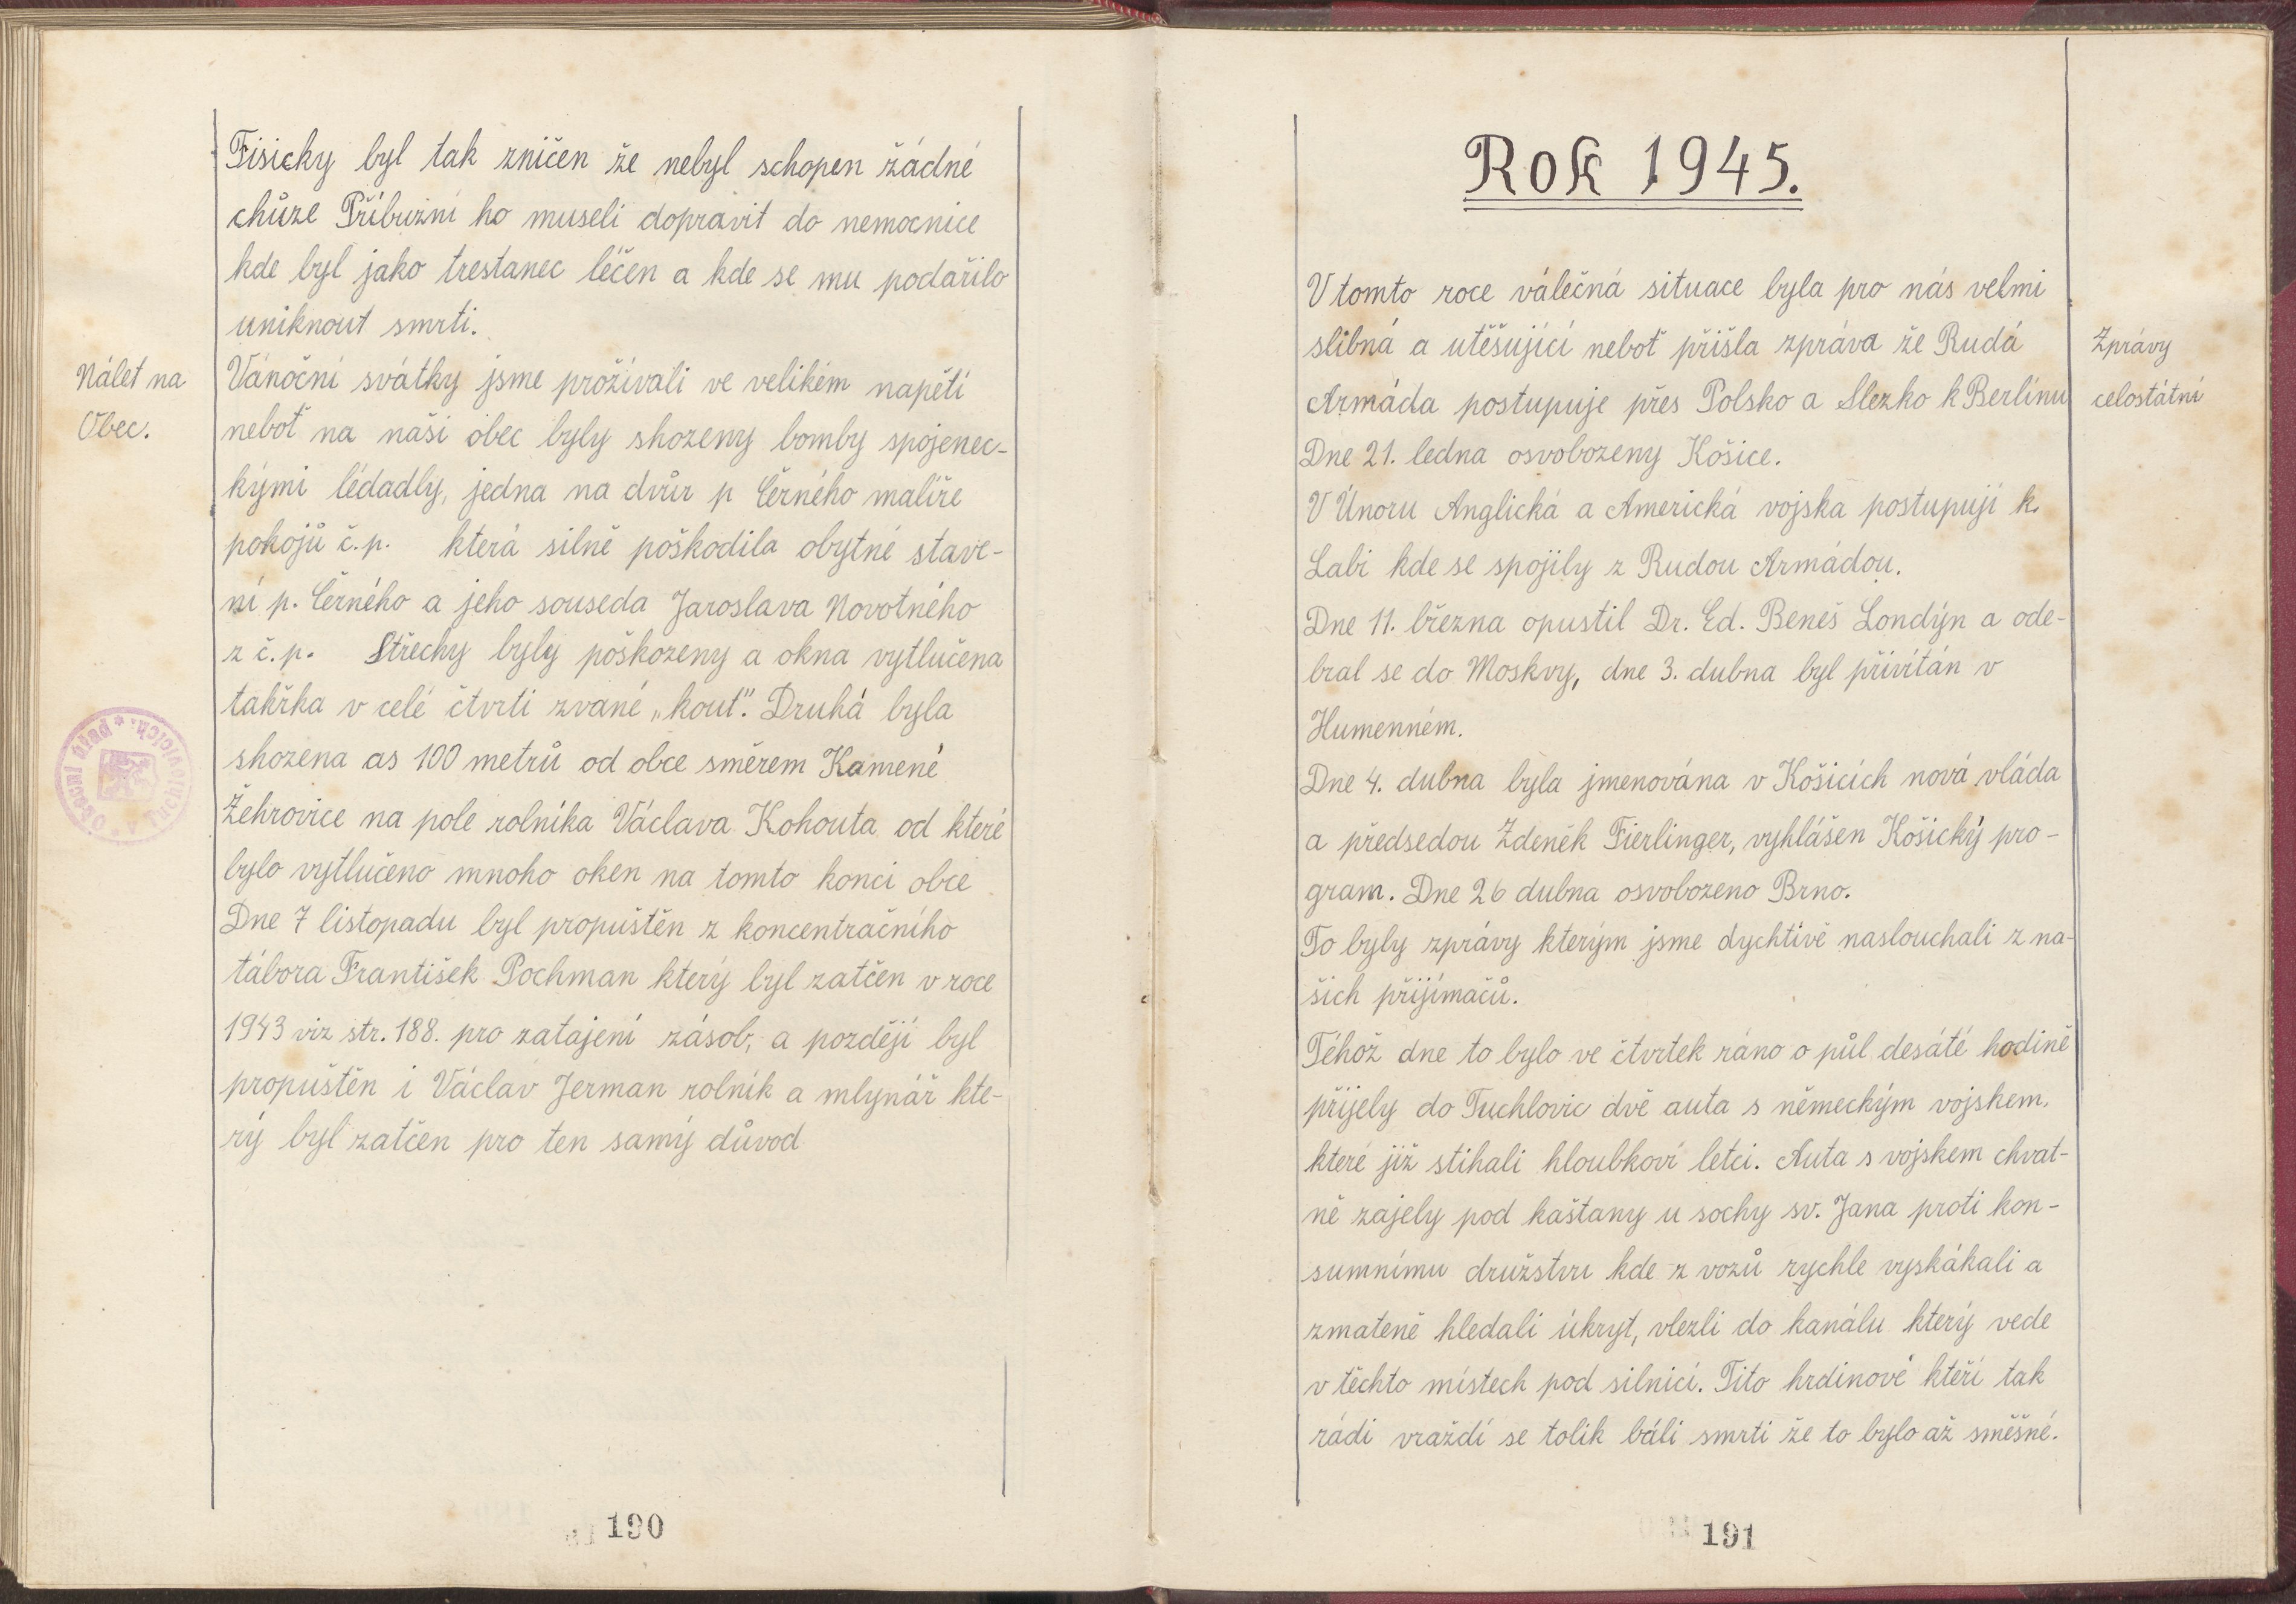 Fisicky byl tak zničen že nebyl schopen žádné
chůze Příbuzní ho museli dopravit do nemocnice
kde byl jako trestanec léčen a kde se mu podařilo
uniknout smrti.
Nálet na
Obec.
Vánoční svátky jsme prožívali ve velikém napětí
neboť na naši obec byly shozeny bomby spojenec-
kými lédadly, jedna na dvůr p Černého malíře
pokojů č.p. která silně poškodila obytné stave-
ní p. Černého a jeho souseda Jaroslava Novotného
z č.p. Střechy byly poškozeny a okna vytlučena
takřka v celé čtvrti zvané „kout". Druhá byla
shozena as 100 metrů od obce směrem Kamené
Žehrovice na pole rolníka Václava Kohouta od které
bylo vytlučeno mnoho oken na tomto konci obce
Dne 7 listopadu byl propuštěn z koncentračního
tábora František Pochman který byl zatčen v roce
1943 viz str. 188. pro zatajení zásob, a později byl
propuštěn i Václav Jerman rolník a mlynář kte-
rý byl zatčen pro ten samý důvod
Obecní úřad v Tuchlovicích.
190
Rok 1945.
V tomto roce válečná situace byla pro nás velmi
slibná a utěšující neboť přišla zpráva že Rudá
Armáda postupuje přes Polsko a Slezko k Berlínu
Zprávy
celostátní
Dne 21. ledna osvobozeny Košice.
V Únoru Anglická a Americká vojska postupují k.
Labi kde se spojily z Rudou Armádou.
Dne 11. března opustil Dr. Ed. Beneš Londýn a ode-
bral se do Moskvy, dne 3. dubna byl přivítán v
Humenném.
Dne 4. dubna byla jmenována v Košicích nová vláda
a předsedou Zdeněk Fierlinger, vyhlášen Košický pro-
gram. Dne 26 dubna osvobozeno Brno.
To byly zprávy kterým jsme dychtivě naslouchali z na-
šich přijímačů.
Téhož dne to bylo ve čtvrtek ráno o půl desáté hodině
přijely do Tuchlovic dvě auta s německým vojskem.
které již stihali hloubkoví letci. Auta s vojskem chvat-
ně zajely pod kaštany u sochy sv. Jana proti kon-
sumnímu družstvu kde z vozů rychle vyskákali a
zmateně hledali úkryt, vlezli do kanálu který vede
v těchto místech pod silnicí. Tito hrdinové kteří tak
rádi vraždí se tolik báli smrti že to bylo až směšné.
191